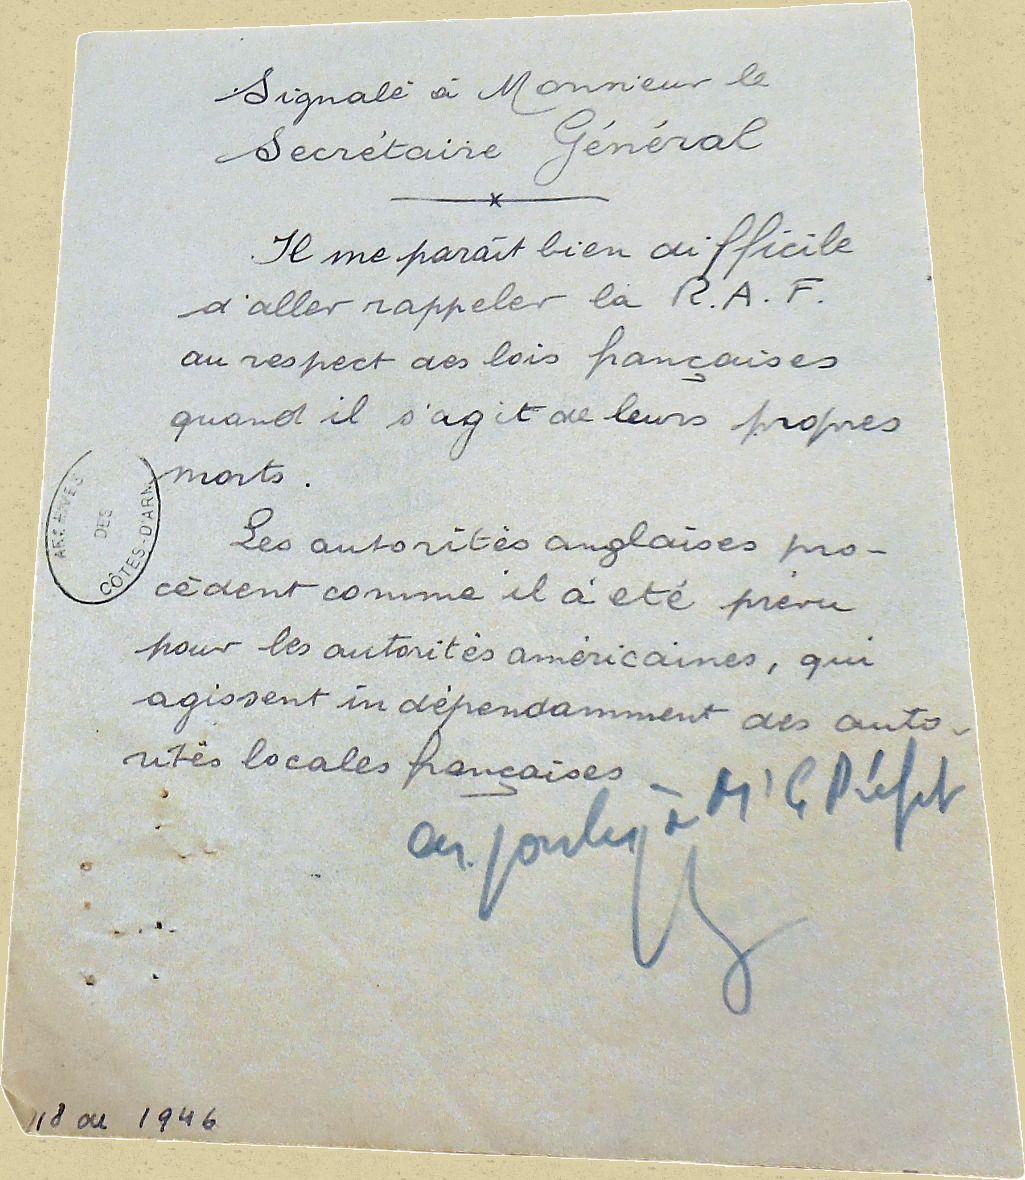 Signalé à Monsieur le
Secrétaire Général
Il me parait bien difficile
d'aller rappeler la R.A.F.
au respect des lois françaises
quand il s'agit de leurs propres
morts.
ARCHIVES
DES
CÔTES-D'ARM
Les autorités anglaises pro-
cèdent comme il a été prévu
pour les autorités américaines, qui
agissent indépendamment des auto-
rités locales françaises
à Mr le Préfet
18 1946